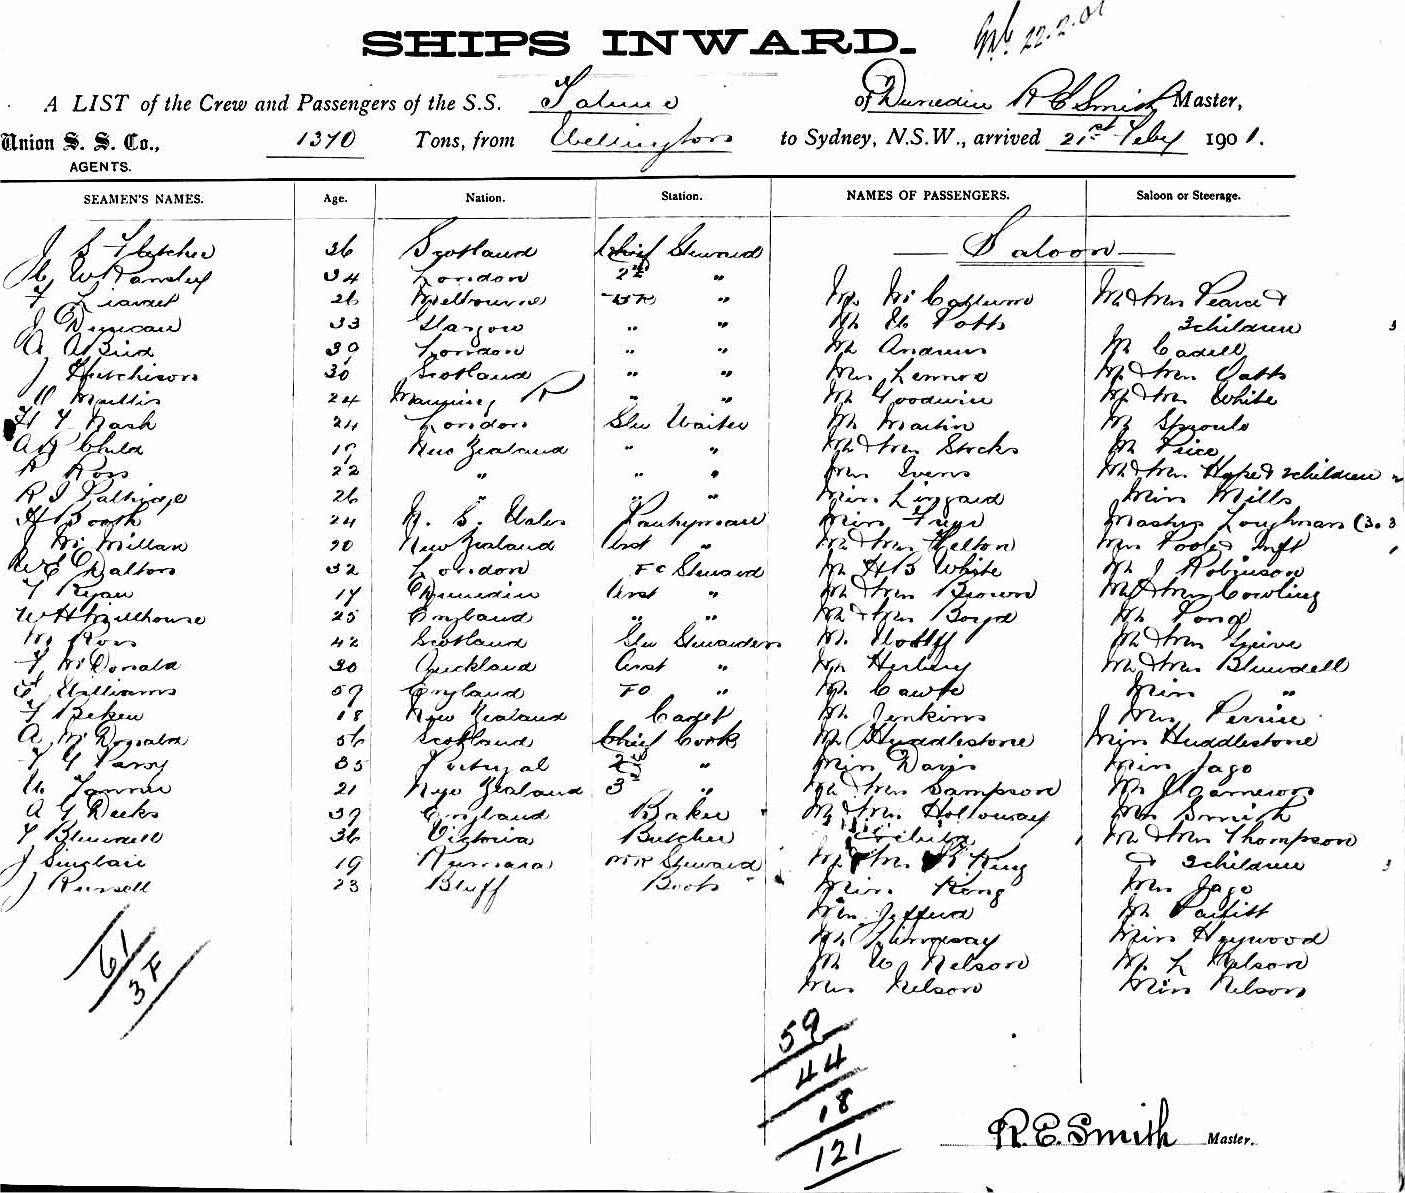 SHIPS INWARD.
22.2.01
A LIST of the Crew and Passengers of the S.S. Talune of Dunedin R E Smith Master,
Union S. S. Co., 1370 Tons, from Wellington to Sydney, N.S.W., arrived 21st Feby 1901.
AGENTS.
SEAMEN'S NAMES. Age. Nation. Station. NAMES OF PASSENGERS. Saloon or Steerage.
J S Fletcher 36 Scotland Chief Steward Saloon
34 London 2nd "
F 26 Melbourne " Mr McCallum Mr & Mrs Pearce &
J Duncan 33 Glasgow " " Mr Potts 3 children 3
A Bird 30 London " " Mr Andrews Mr Cadell
J Hutchison 30 Scotland " " Mrs Lennox Mr & Mrs Oatts
24 Manning R " " Mr Goodwin Mr & Mrs White
H F Nash 24 London Waiter Mr Martin Mr Sproule
A R Child 19 New Zealand " " Mr & Mrs Stocks Mr Price
R Ross 22 " " " Mrs Ivens Mr & Mrs Hope & 2 children 2
R J 26 " " " Miss Lingard Miss Mills
H Booth 24 N. S. Wales Pantryman Miss Master Loughnan (3. 3
J McMillan 20 New Zealand Asst " Mr & Mrs Helton Mrs Poole & Inft
W E Dalton 32 London FC Steward Mr H B White Mr J Robinson
F Ryan 17 Dunedin Asst " Mr & Mrs Brown Mr & Mrs Cowling
W H Millhouse 25 England " " Mr & Mrs Boyd Mr Pond
M Ross 42 Scotland Stewardess Mr Mr & Mrs Spive
F McDonald 30 Auckland Asst " Mr Herbery Mr & Mrs Blundell
Williams 59 England FC " Mr Cawte Miss "
F Beken 18 New Zealand Cadet Mr Jenkins Mrs Perrin
A McDonald 56 Scotland Chief Cook Mr Huddlestone Miss Huddlestone
F G 35 Portugal 2nd " Miss Davis Miss Jago
Tanner 21 New Zealand 3rd " Mr & Mrs Sampson Mr J
A G Deeks 39 England Baker Mr & Mrs Holloway Mr Smith
F Blundell 36 Victoria Butcher Mr & Mrs Thompson
J Sinclair 19 Kumara Steward Mr & Mrs King & 3 children 3
J Russell 23 Bluff Boots Miss King Mrs Jago
Mr Parfitt
Mr Lindsay Miss Heywood
61 Mr W Nelson Mr L Nelson
3 F Mrs Nelson Miss Nelson
59
44
18
121
R. E. Smith Master.